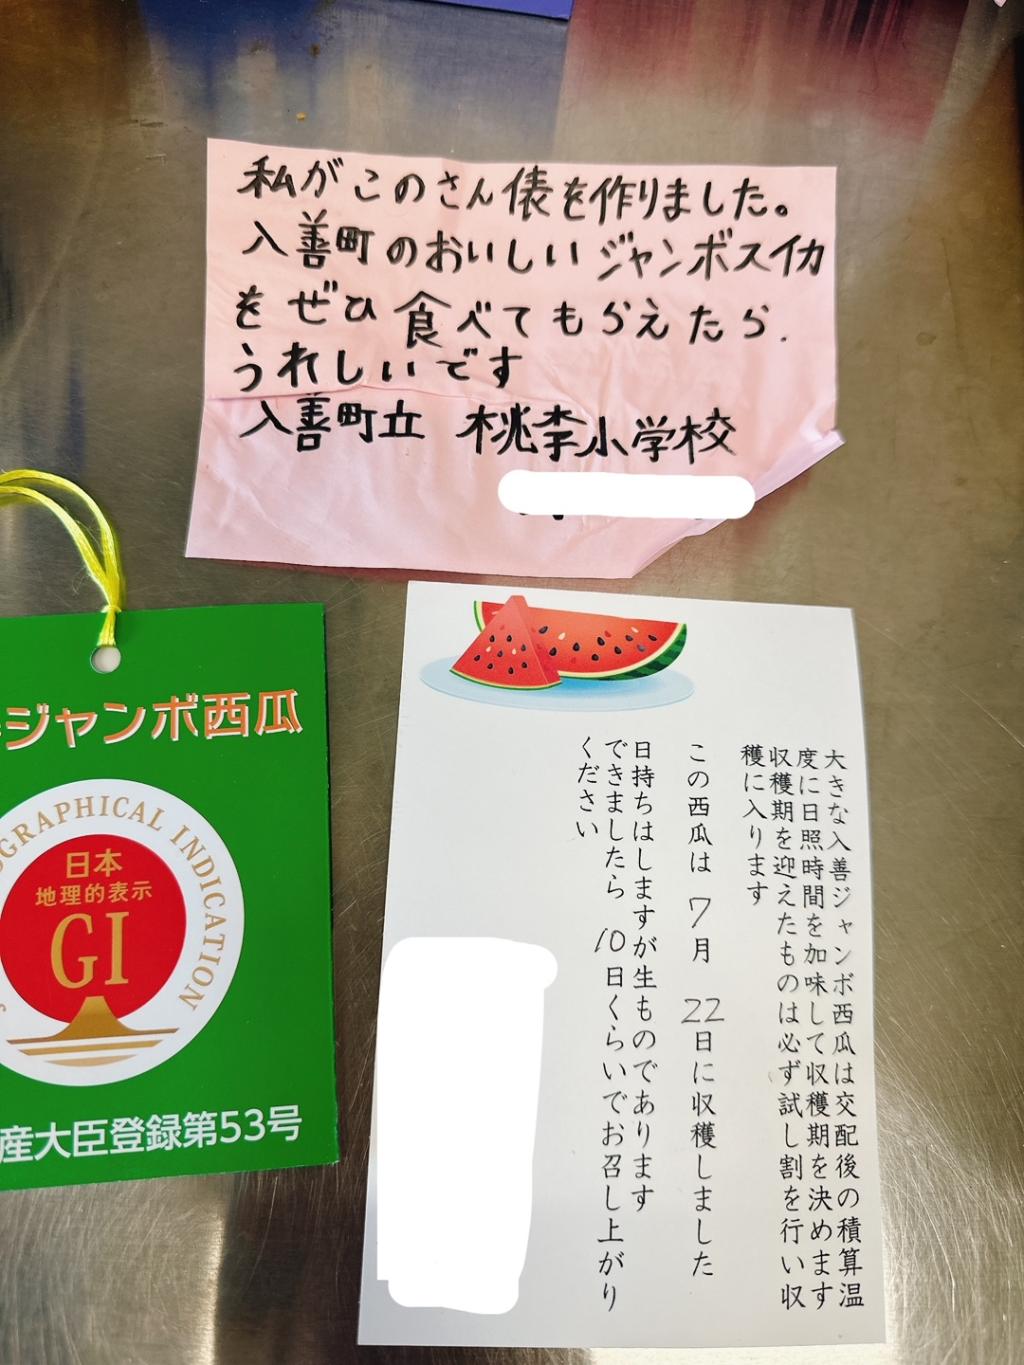 私がこのさん俵を作りました。
入善町のおいしいジャンボスイカ
をぜひ食べてもらえたら.
うれしいです
入善町立 桃李小学校
ジャンボ西瓜
OGRAPHICAL INDICATION
日本
地理的表示
GI
産大臣登録第53号
大きな入善ジャンボ西瓜は交配後の積算温
度に日照時間を加味して収穫期を決めます
収穫期を迎えたものは必ず試し割を行い収
穫に入ります
この西瓜は 7月 22日に収穫しました
日持ちはしますが生ものであります
できましたら 10日くらいでお召し上がり
ください